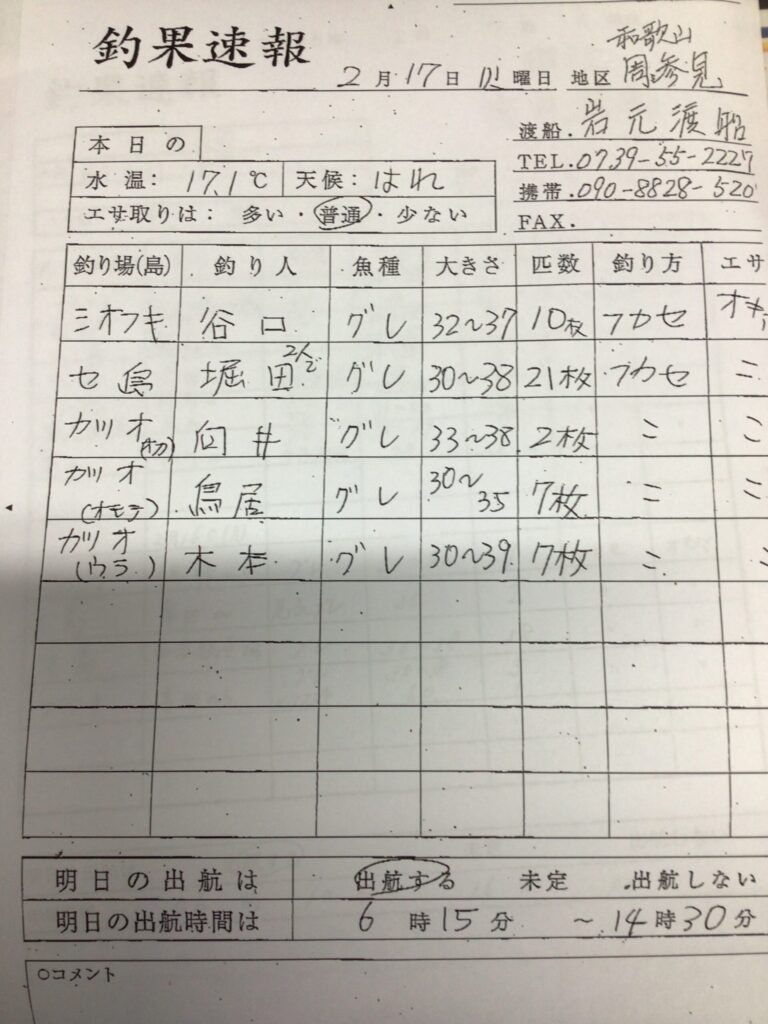 釣果速報
2月17日 火曜日 地区 和歌山 周参見
渡船. 岩元渡船
TEL. 0739-55-2227
携帯. 090-8828-520
FAX.
本日の
水温: 17.1℃ 天候: はれ
エサ取りは: 多い・普通・少ない
釣り場(島) 釣り人 魚種 大きさ 匹数 釣り方 エサ
ミオフキ 谷口 グレ 32〜37 10枚 フカセ オキ
セ島 堀田 2人で グレ 30〜38 21枚 フカセ ミ
カツオ 向井 グレ 33〜38 2枚 ミ ミ
カツオ(オモテ) 鳥居 グレ 30〜35 7枚 ミ ミ
カツオ(ウラ) 木本 グレ 30〜39 7枚 ミ
明日の出航は 出航する 未定 出航しない
明日の出航時間は 6時15分 〜14時30分
○コメント